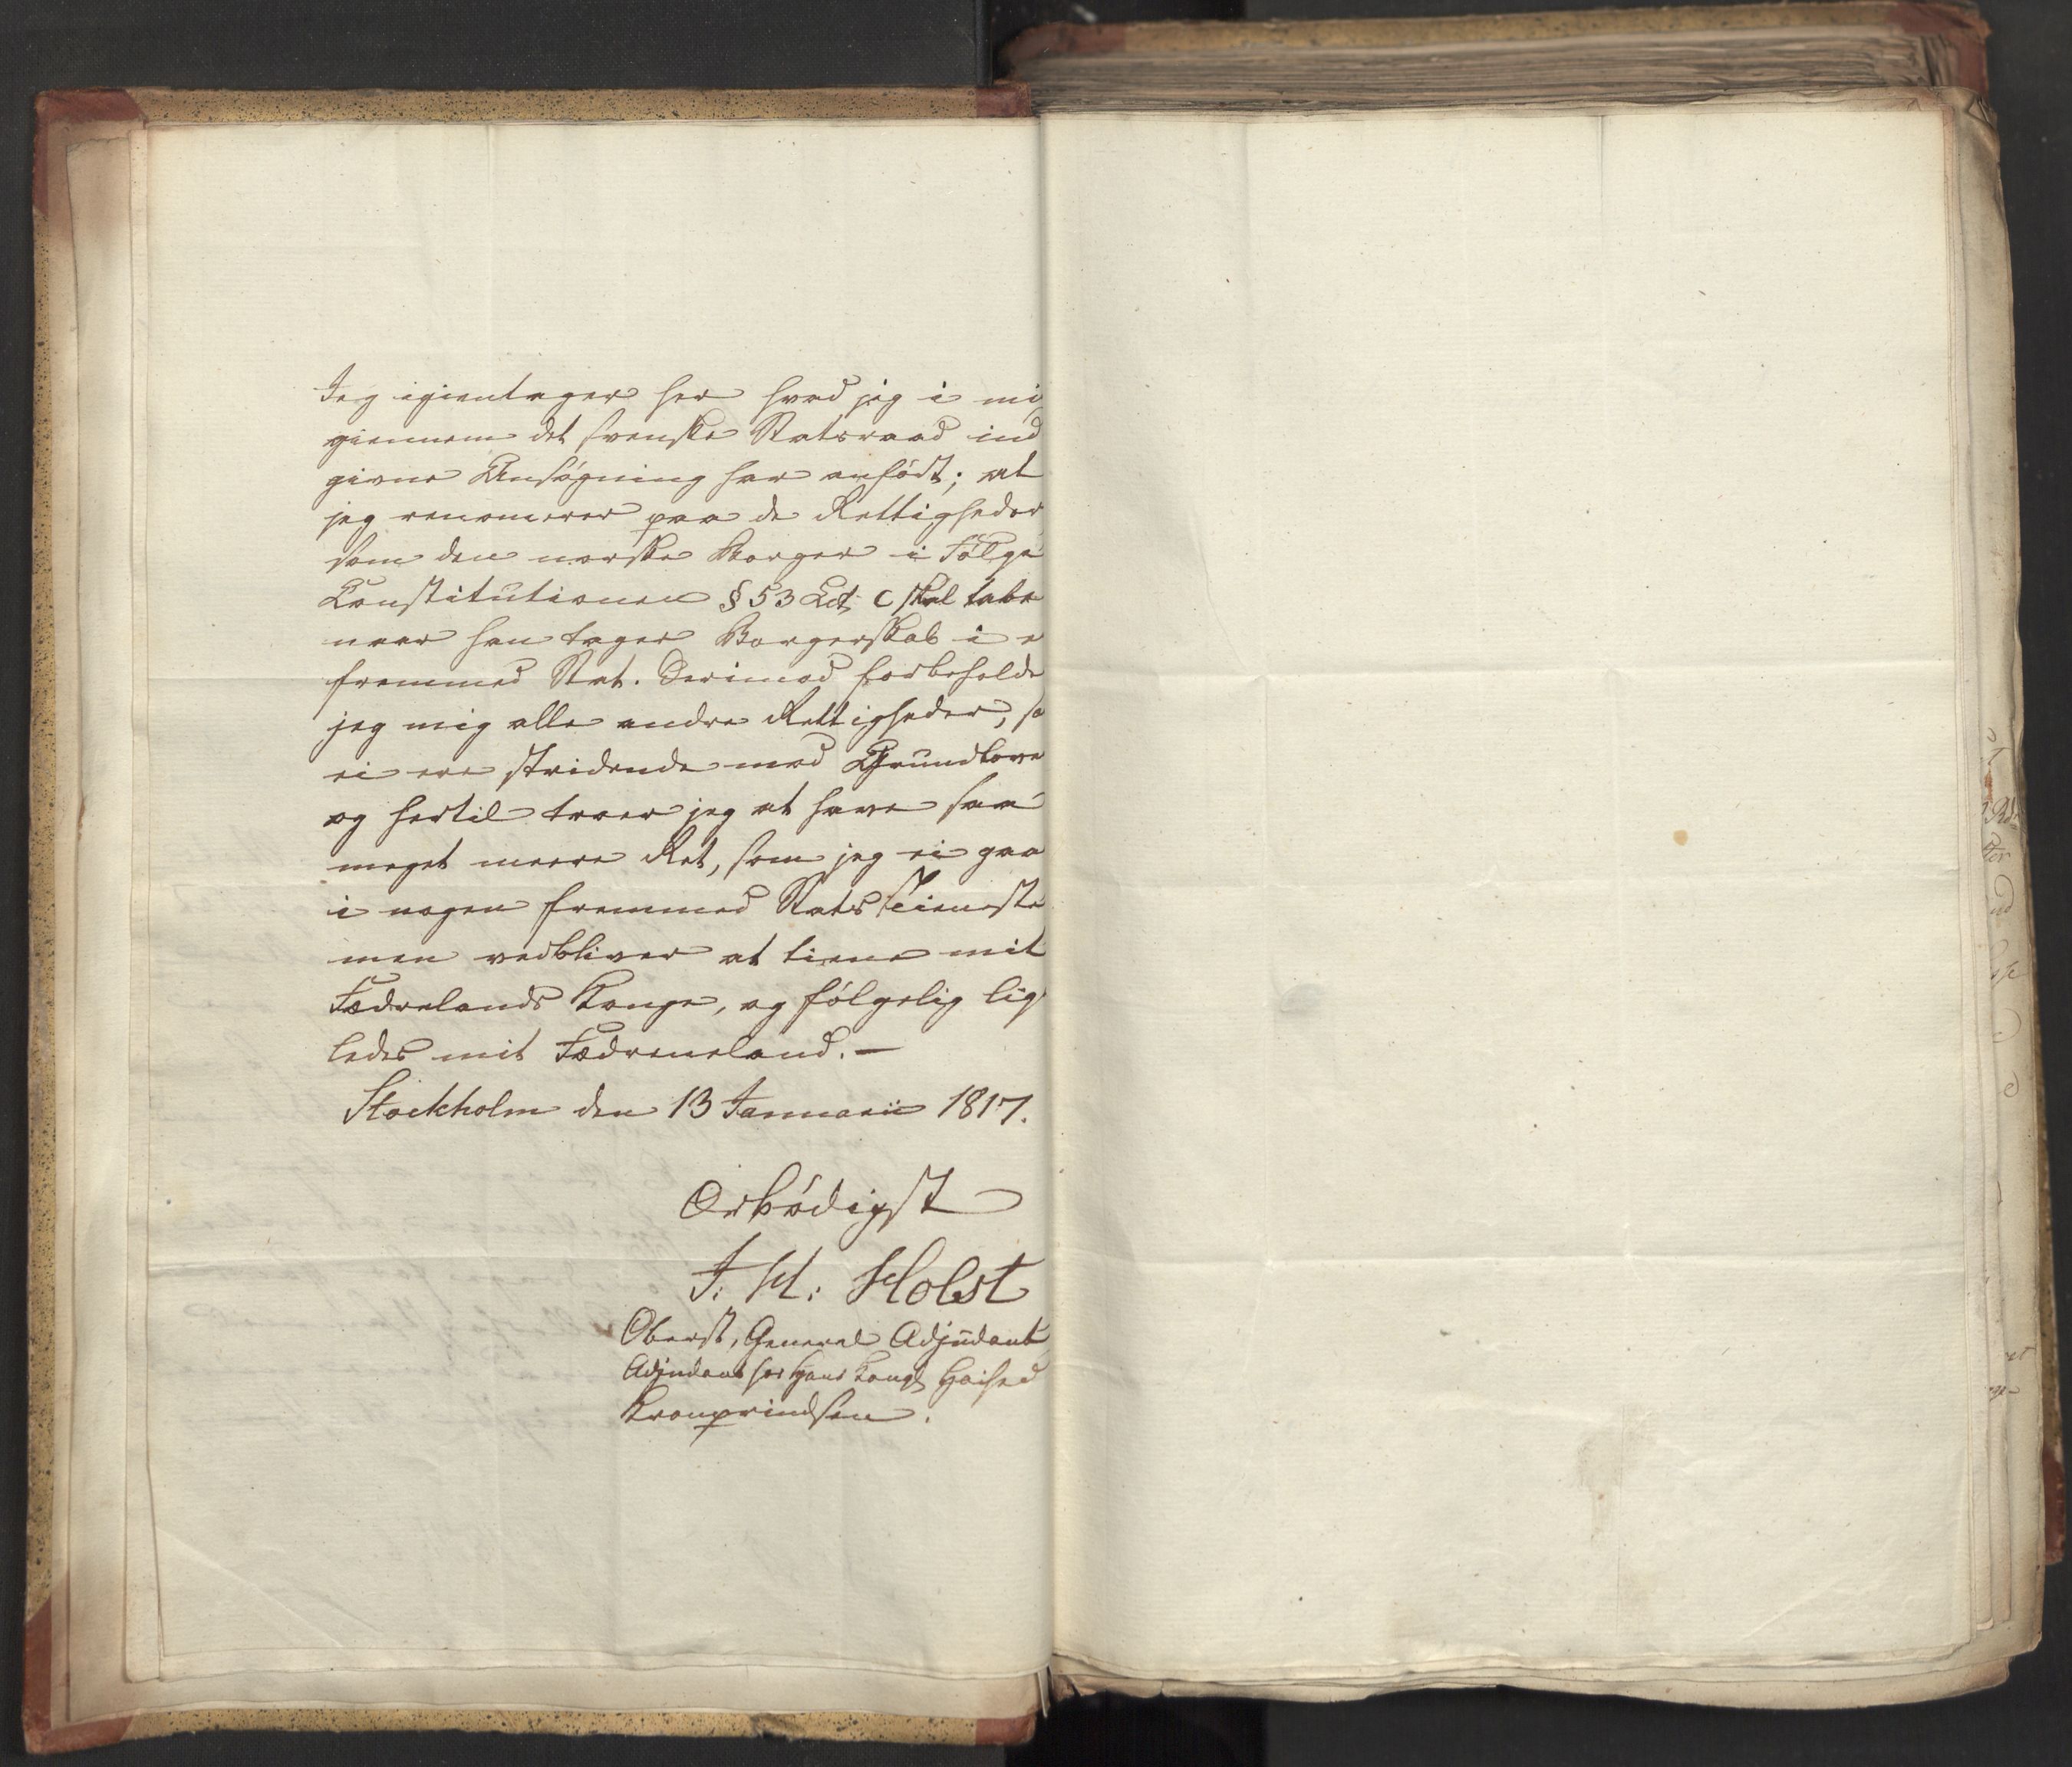 Jeg igientager her hvad jeg i mi
giennem det svenske Statsraad ind
givne Ansøgning har anført; at
jeg renoncerer paa de Rettigheder
som den norske Borger i Følge
Constitutionen § 53 Lit C skal tabe
naar han tager Borgerskab i e
fremmed Stat. Derimod forbeholde
jeg mig alle andre Rettigheder, so
ei ere stridende mod Grundlove
og hertil troer jeg at have saa
meget meere Ret, som jeg ei gaa
i nogen fremmed Stats Tieneste
men vedbliver at tiene mit
Fædrelands Konge, og følgelig lige
ledes mit Fædreneland. —
Stockholm den 13 Januarii 1817.
Ærbødigst
J: H: Holst
Oberst, General Adjudant
Adjudant hos Hans Kongl Høihed
Kronprindsen.